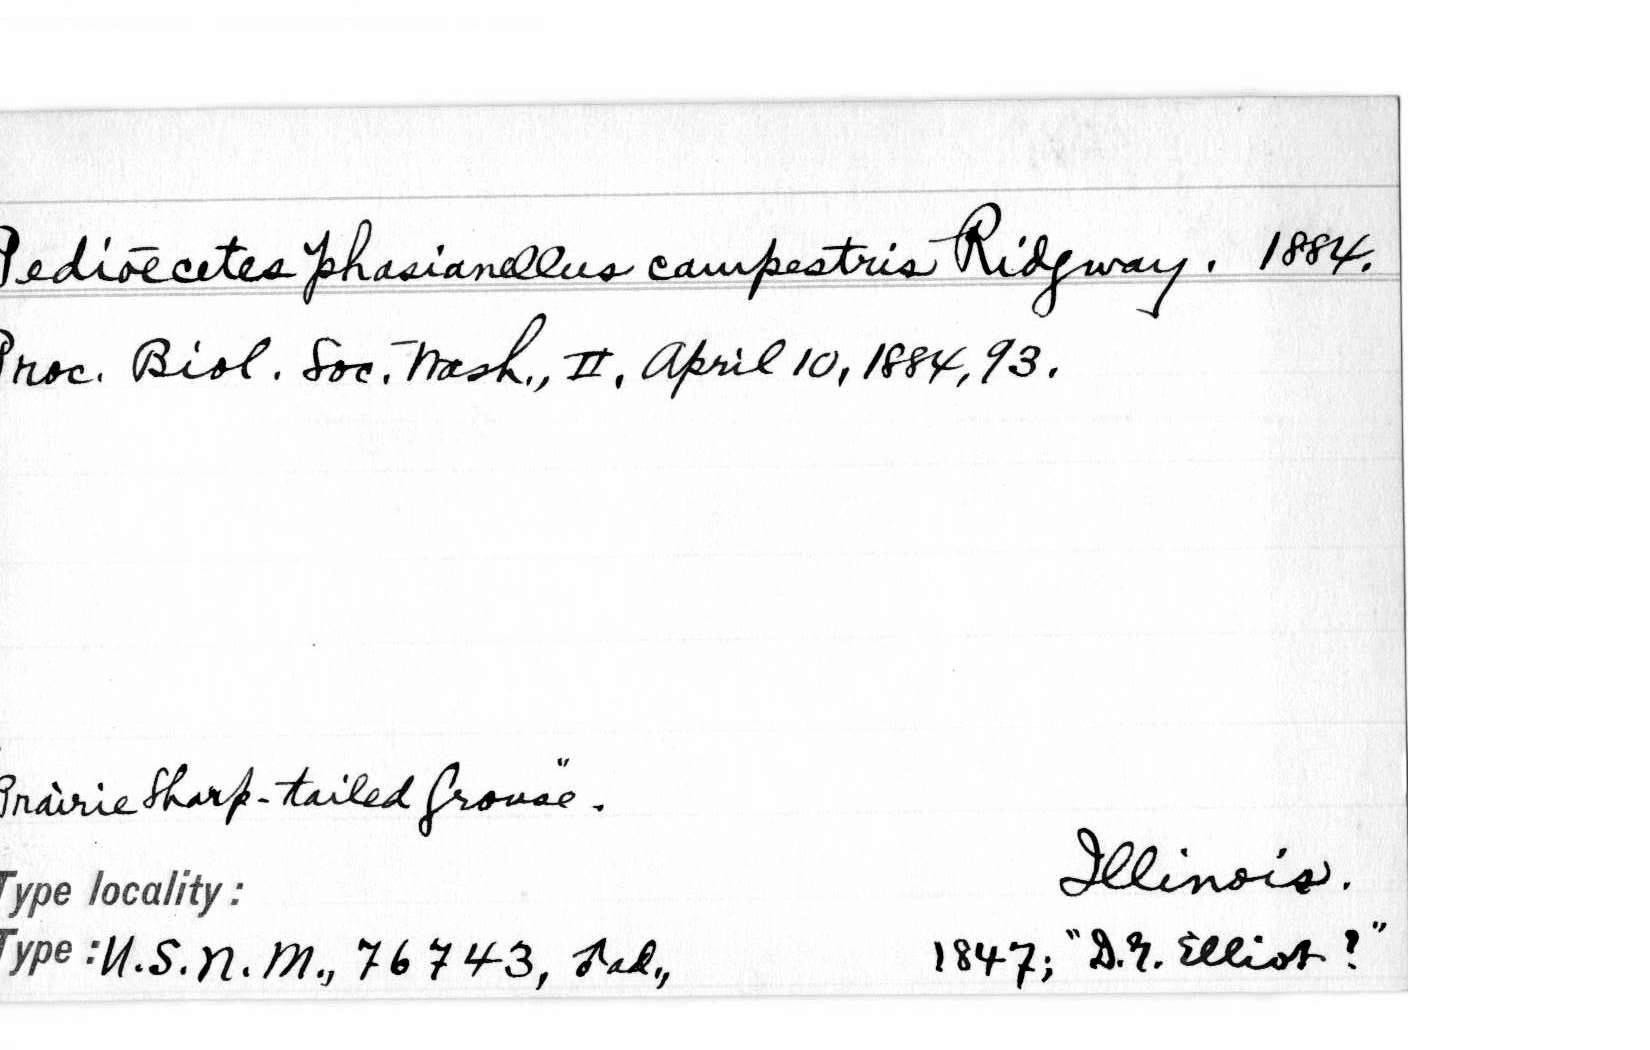 Pediœcetes phasianellus campestris Ridgway. 1884.
Proc. Biol. Soc. Wash., II, April 10, 1884, 93.
Prairie Sharp-tailed Grouse".
Illinois.
Type locality:
Type: U.S.N.M., 76743, ad., 1847; "D.G. Elliot?"